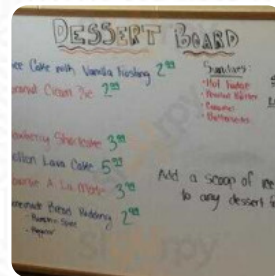 DESSERT BOARD
Cake with Vanilla Frosting 2⁹⁹
Cream Pie 2⁹⁹
Shortcake 3⁹⁹
Lava Cake 5⁹⁹
A La Mode 3⁹⁹
Bread Pudding 2⁹⁹
- Pumpkin Spice
- Regular
Sundaes:
- Hot Fudge
- Peanut Butter
- Caramel
- Butterscotch
Add a scoop of
to any dessert